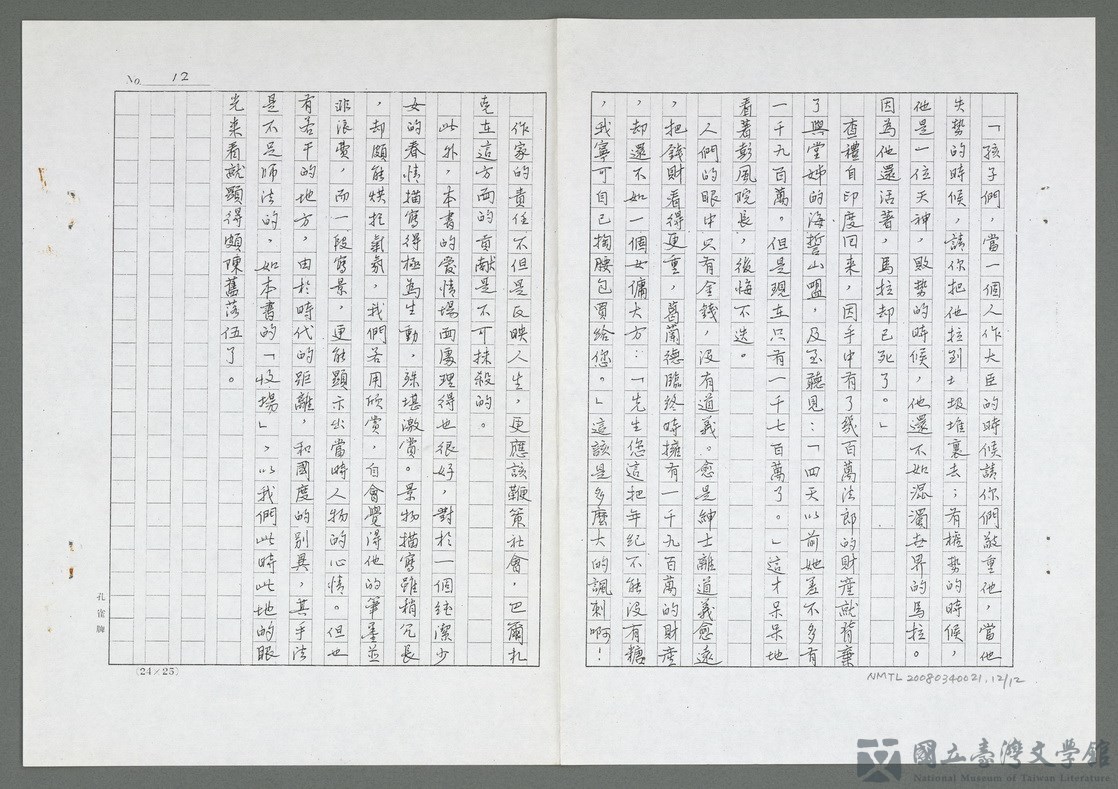 「孩子們，當一個人作大臣的時候請你們敬重他，當他
失勢的時候，請你把他拉到土圾堆裏去；有權勢的時候，
他是一位天神，敗勢的時候，他還不如混濁世界的馬拉。
因為他還活著，馬拉却已死了。」
查禮自印度回來，因手中有了幾百萬法郎的財產就背棄
了與堂姊的海誓山盟，及至聽見：「四天以前她差不多有
一千九百萬。但是現在只有一千七百萬了。」這才呆呆地
看著彭風院長，後悔不迭。
人們的眼中只有金錢，沒有道義。愈是紳士離道義愈遠
，把錢財看得更重，葛蘭德臨終時擁有一千九百萬的財產
，却還不如一個女傭大方：「先生您這把年紀不能沒有糖
，我寧可自己掏腰包買給您。」這該是多麼大的諷刺啊！
No. 12
作家的責任不但是反映人生，更應該鞭策社會，巴爾扎
克在這方面的貢献是不可抹殺的。
此外，本書的愛情場面處理得也很好，對於一個純潔少
女的春情描寫得極為生動，殊堪激賞。景物描寫雖稍冗長
，却頗能烘托氣氛，我們若用欣賞，自會覺得他的筆墨並
非浪費，而一段寫景，更能顯示出當時人物的心情。但也
有若干的地方，由於時代的距離，和國度的別異，其手法
是不足師法的，如本書的「收場」，以我們此時此地的眼
光來看就顯得頗陳舊落伍了。
孔雀牌
(24×25)
NMTL 20080340021.12/12
國立臺灣文學館
National Museum of Taiwan Literature